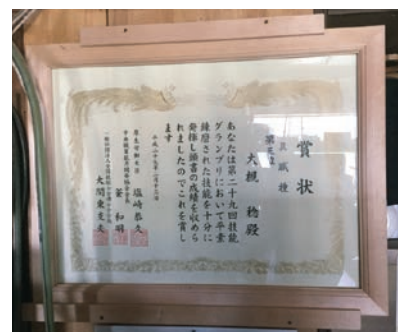 賞状
職種
大槻 稔殿
あなたは第二十九回技能
グランプリにおいて平素
錬磨された技能を十分に
発揮し頭書の成績を収めら
れましたのでこれを賞し
ます
平成二十九年二月十三日
厚生労働大臣 塩崎恭久
中央職業能力開発協会会長 釜 和明
大関東支夫